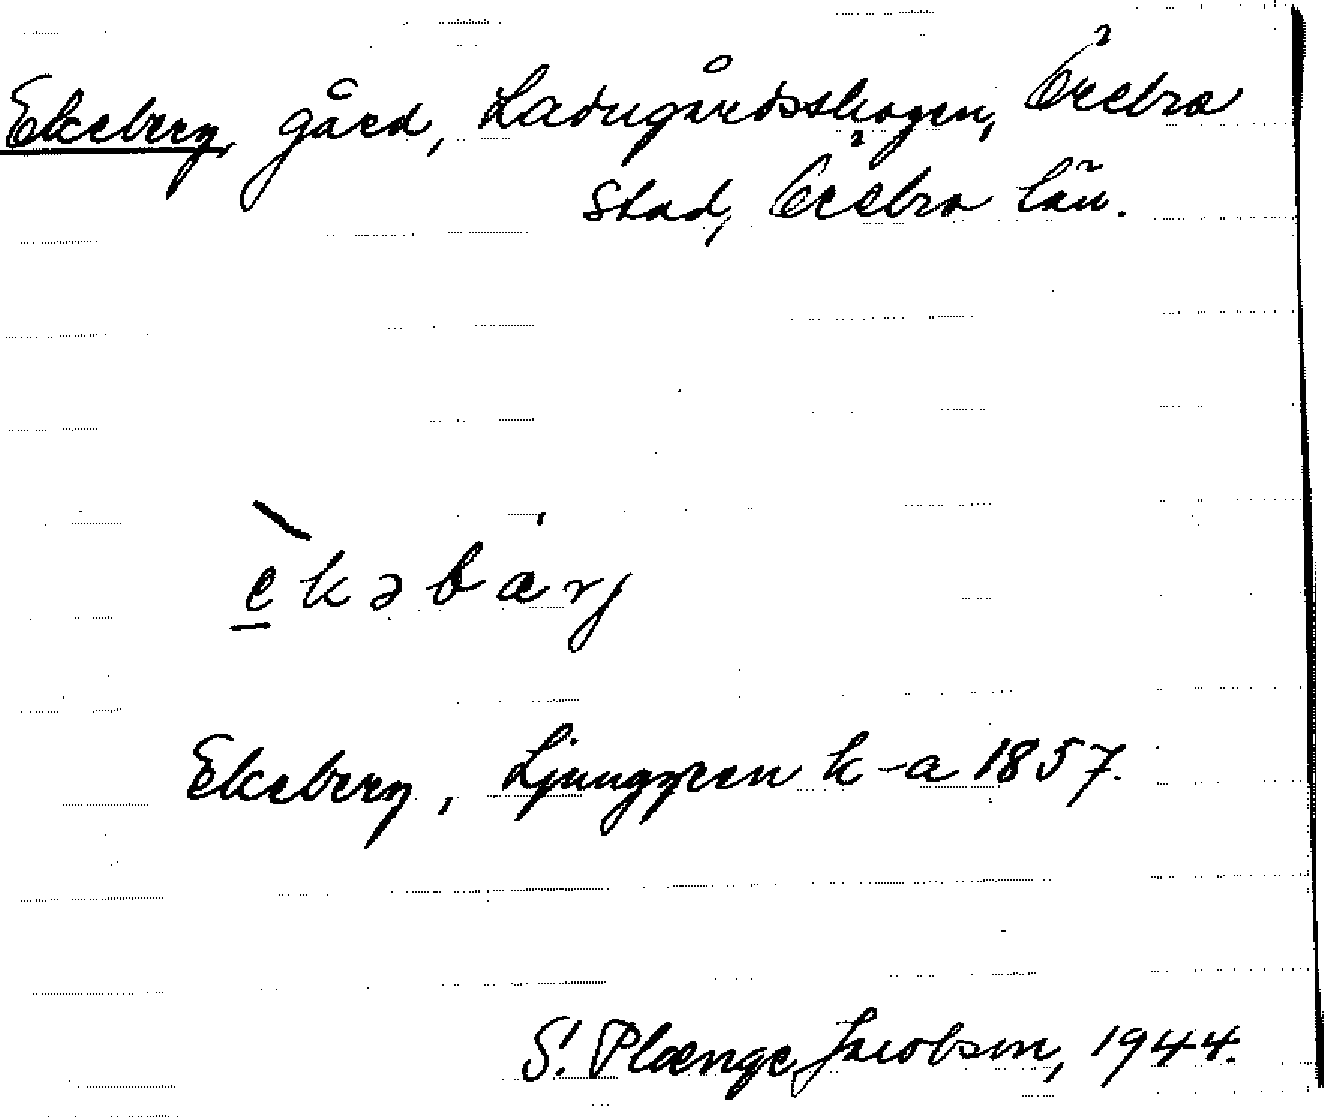 Ekeberg, gård, Ladugårdsskogen, Örebro
stad, Örebro län.
èkəbärj
Ekeberg, Ljunggren k-a 1857.
S. Plænge Jacobson, 1944.